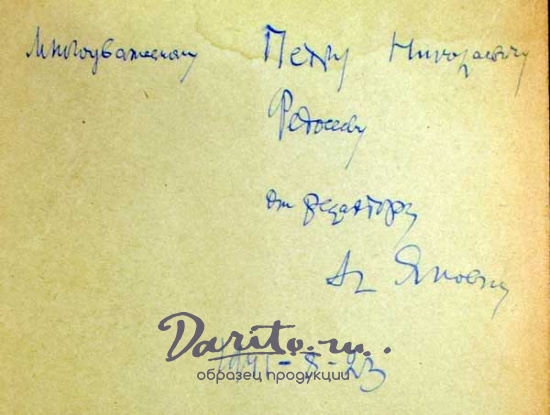 Многоуважаемому Петру Николаевичу
Федосееву
от редактора
Darito.ru..
образец продукции